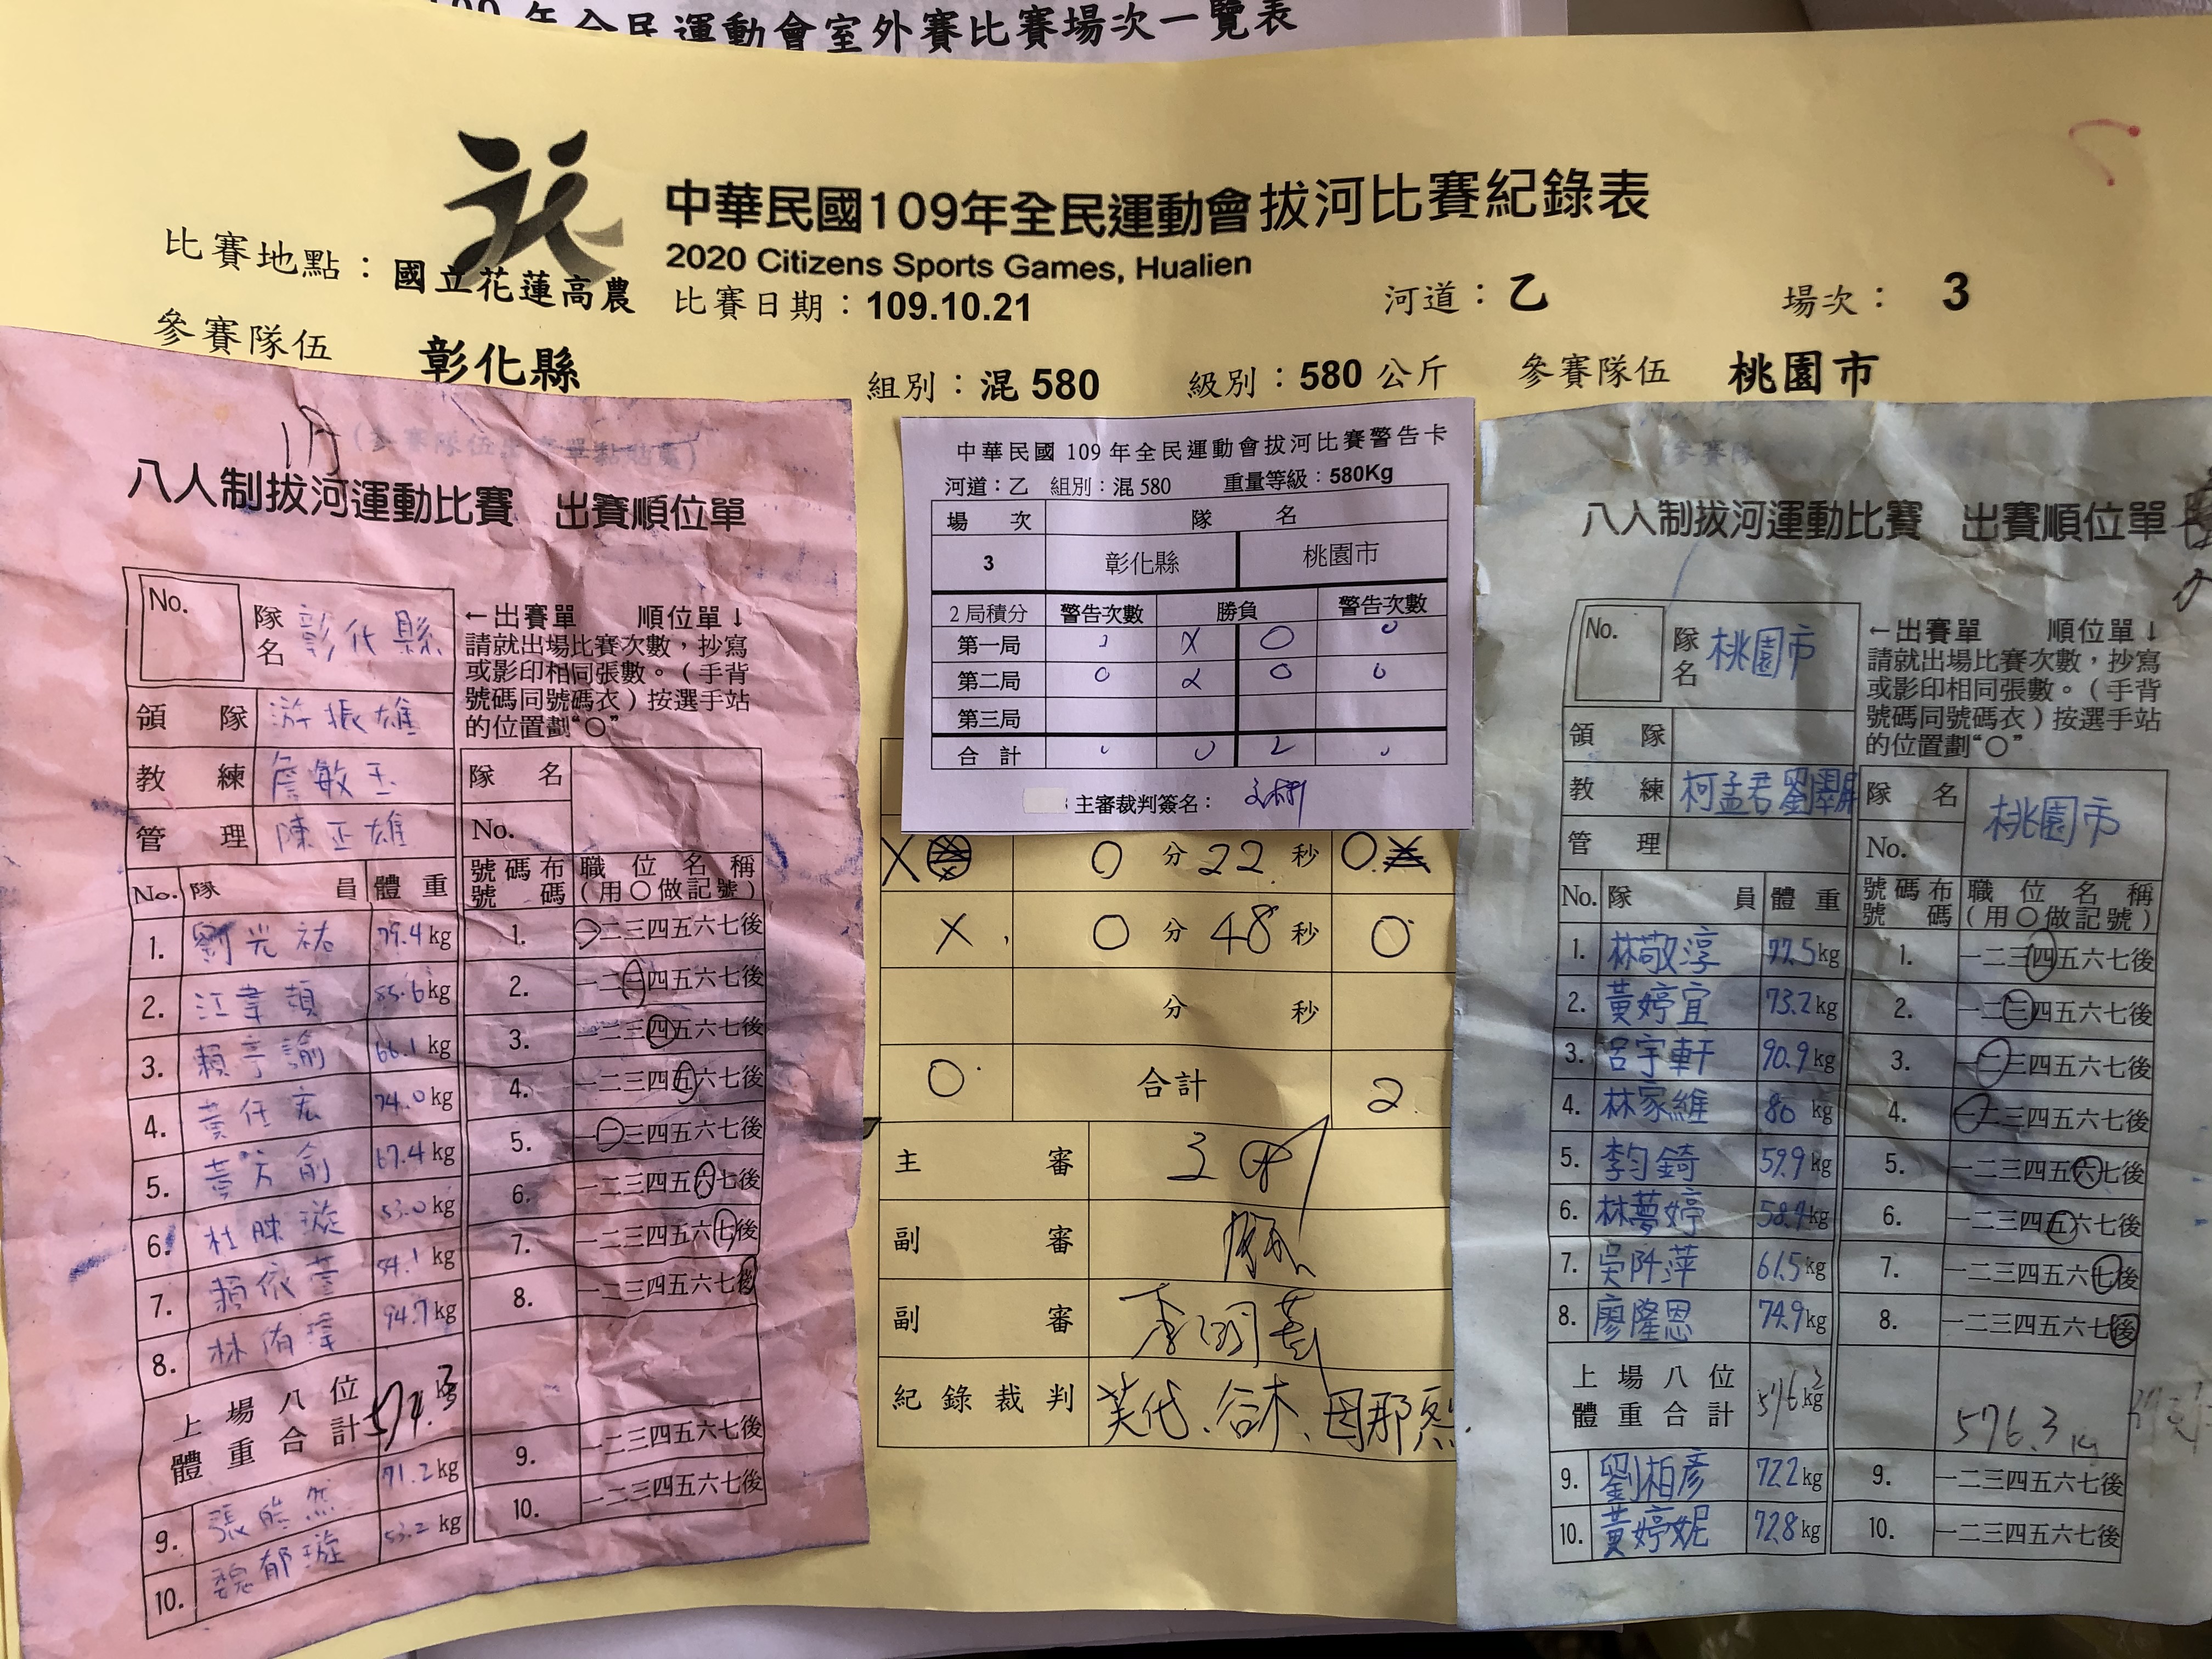 年全民運動會室外賽比賽場次一覽表
中華民國109年全民運動會拔河比賽紀錄表
2020 Citizens Sports Games, Hualien
比賽地點：國立花蓮高農 比賽日期：109.10.21 河道：乙 場次： 3
參賽隊伍 彰化縣 組別：混 580 級別：580 公斤 參賽隊伍 桃園市
(參賽隊伍出賽單黏貼處)
八人制拔河運動比賽 出賽順位單
No. 隊名 彰化縣
←出賽單 順位單↓
請就出場比賽次數，抄寫
或影印相同張數。(手背
號碼同號碼衣）按選手站
的位置劃“○”
領隊 游振雄
教練 詹敏玉
管理 陳正雄
隊名
No.
No. 隊員 體重 號碼布號碼 職位名稱(用○做記號)
1. 劉光祐 79.4kg 1. 一二三四五六七後
2. 江韋頡 85.6kg 2. 一二三四五六七後
3. 賴亭諭 66.1kg 3. 一二三四五六七後
4. 黃任宏 74.0kg 4. 一二三四五六七後
5. 67.4kg 5. 一二三四五六七後
6. 杜 璇 53.0kg 6. 一二三四五六七後
7. 賴依 54.1kg 7. 一二三四五六七後
8. 林侑 94.7kg 8. 一二三四五六七後
上場八位體重合計 574.3 kg
9. 張 然 71.2kg 9. 一二三四五六七後
10. 魏郁璇 53.2kg 10. 一二三四五六七後
中華民國 109 年全民運動會拔河比賽警告卡
河道：乙 組別：混 580 重量等級：580Kg
場次 隊名
3 彰化縣 桃園市
2 局積分 警告次數 勝負 警告次數
第一局 X 0 0
第二局 0 X 0 0
第三局
合計 0 0 2 0
主審裁判簽名：
X 0 分 22 秒 0
X 0 分 48 秒 0
分 秒
0 合計 2
主審
副審
副審
紀錄裁判 芙代、谷木、因那
八人制拔河運動比賽 出賽順位單
No. 隊名 桃園市
←出賽單 順位單↓
請就出場比賽次數，抄寫
或影印相同張數。(手背
號碼同號碼衣）按選手站
的位置劃“○”
領隊
教練 柯孟君劉翠屏
管理
隊名 桃園市
No.
No. 隊員 體重 號碼布號碼 職位名稱(用○做記號)
1. 林敬淳 77.5kg 1. 一二三四五六七後
2. 黃婷宜 73.2kg 2. 一二三四五六七後
3. 呂宇軒 90.9kg 3. 一二三四五六七後
4. 林家維 80 kg 4. 一二三四五六七後
5. 李勻錡 59.9kg 5. 一二三四五六七後
6. 林夢婷 58.4kg 6. 一二三四五六七後
7. 吳阡萍 61.5kg 7. 一二三四五六七後
8. 廖隆恩 74.9kg 8. 一二三四五六七後
上場八位體重合計 576.3 kg 576.3 kg
9. 劉柏彥 72.2kg 9. 一二三四五六七後
10. 黃婷妮 72.8kg 10. 一二三四五六七後